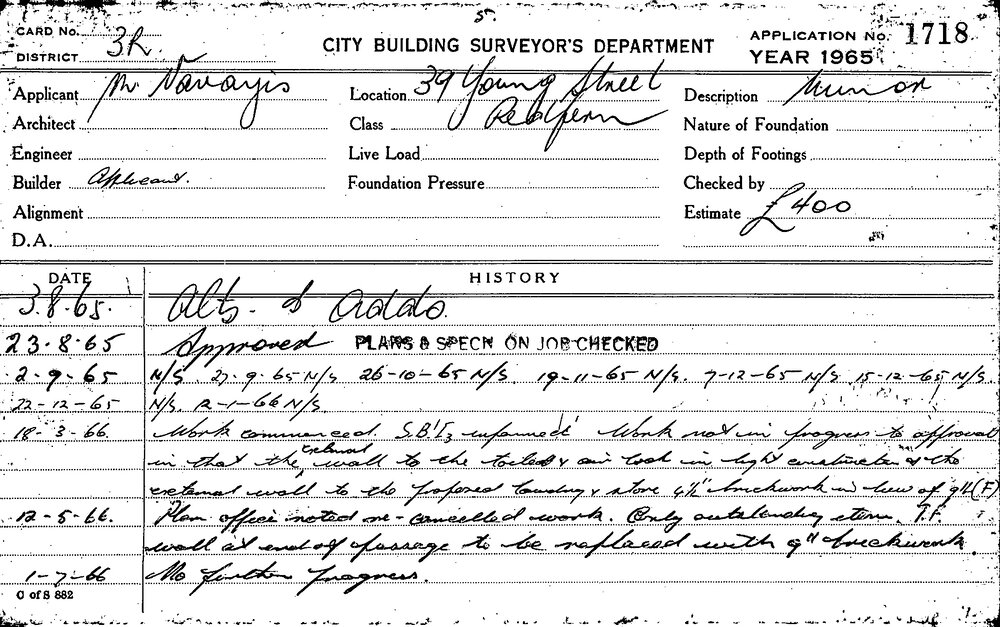 5.
CARD No.
DISTRICT 3R.
CITY BUILDING SURVEYOR'S DEPARTMENT
APPLICATION No. 1718
YEAR 1965
Applicant Mr Navayis Location 39 Young Street Description Minor
Architect Class Redfern Nature of Foundation
Engineer Live Load Depth of Footings
Builder Applicant. Foundation Pressure Checked by
Alignment Estimate £400
D.A.
DATE HISTORY
3.8.65. Alts. & Adds.
23.8.65 Approved PLANS & SPECN ON JOB CHECKED
2-9-65 N/S. 27-9-65 N/S 26-10-65 N/S. 19-11-65 N/S. 7-12-65 N/S 15-12-65 N/S.
22-12-65 N/S. 12-1-66 N/S.
18-3-66. Work commenced. S.B.I. informed Work not in progress to approval
in that the external wall to the toilet & air lock in light construction & the
external wall to the proposed laundry & store 4½" brickwork in lieu of 9" (F)
12-5-66. Plan office noted re-cancelled work. Only outstanding item. T.F.
wall at end of passage to be replaced with 9" brickwork.
1-7-66 No further progress.
C of S 882